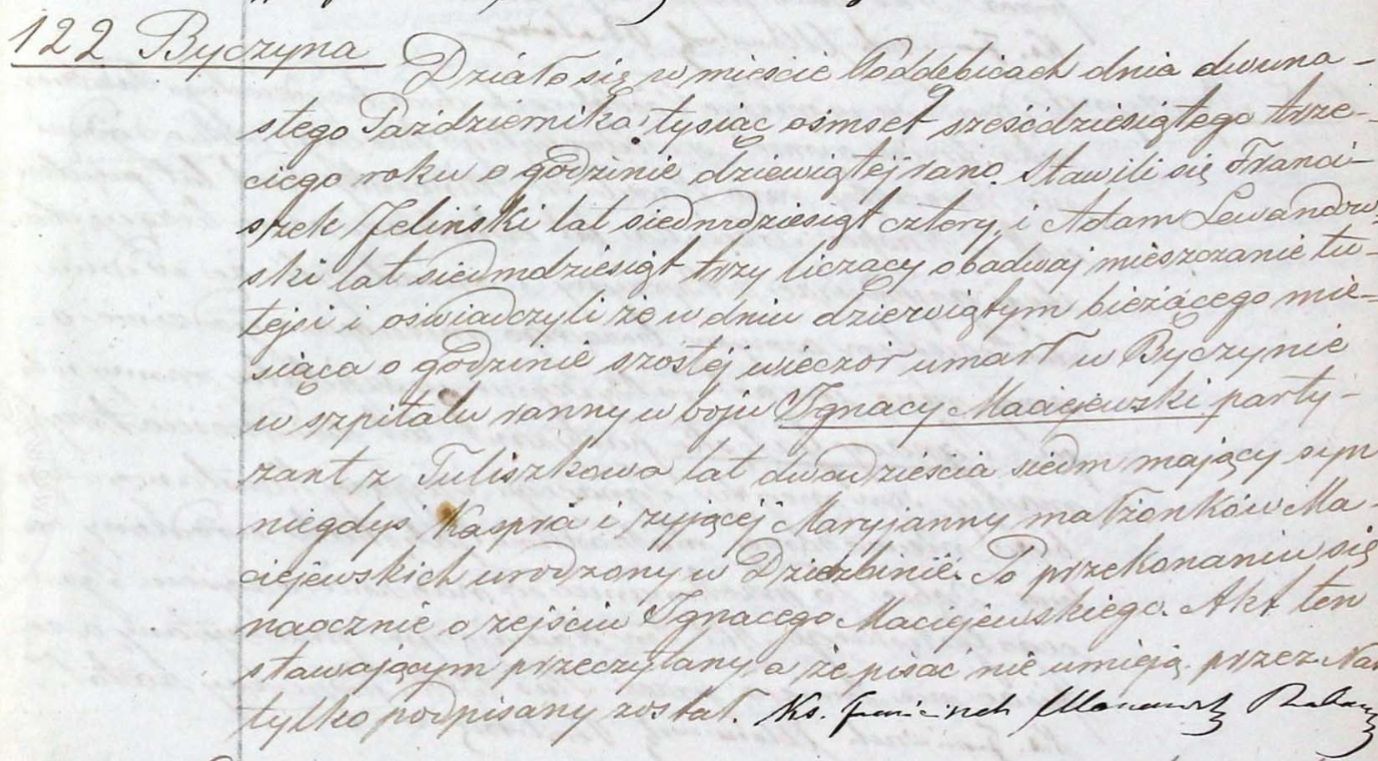 122 Byczyna
Działo się w mieście Poddębicach dnia dwuna-
stego Października tysiąc ośmset sześćdziesiątego trze-
ciego roku o godzinie dziewiątej rano. Stawili się Franci-
szek Jeliński lat siedmdziesiąt cztery, i Adam Lewandow-
ski lat siedmdziesiąt trzy liczący obadwaj mieszczanie tu-
tejsi i oświadczyli że w dniu dziewiątym bieżącego mie-
siąca o godzinie szostej wieczór umarł w Byczynie
w szpitalu ranny w boju Ignacy Maciejewski party-
zant z Tuliszkowa lat dwadzieścia siedm mający syn
niegdyś Kaspra i żyjącej Maryjanny małżonków Ma-
ciejewskich urodzony w Dzierzbinie. Po przekonaniu się
naocznie o zejściu Ignacego Maciejewskiego. Akt ten
stawającym przeczytany a że pisać nie umieją przez Nas
tylko podpisany został. Ks.